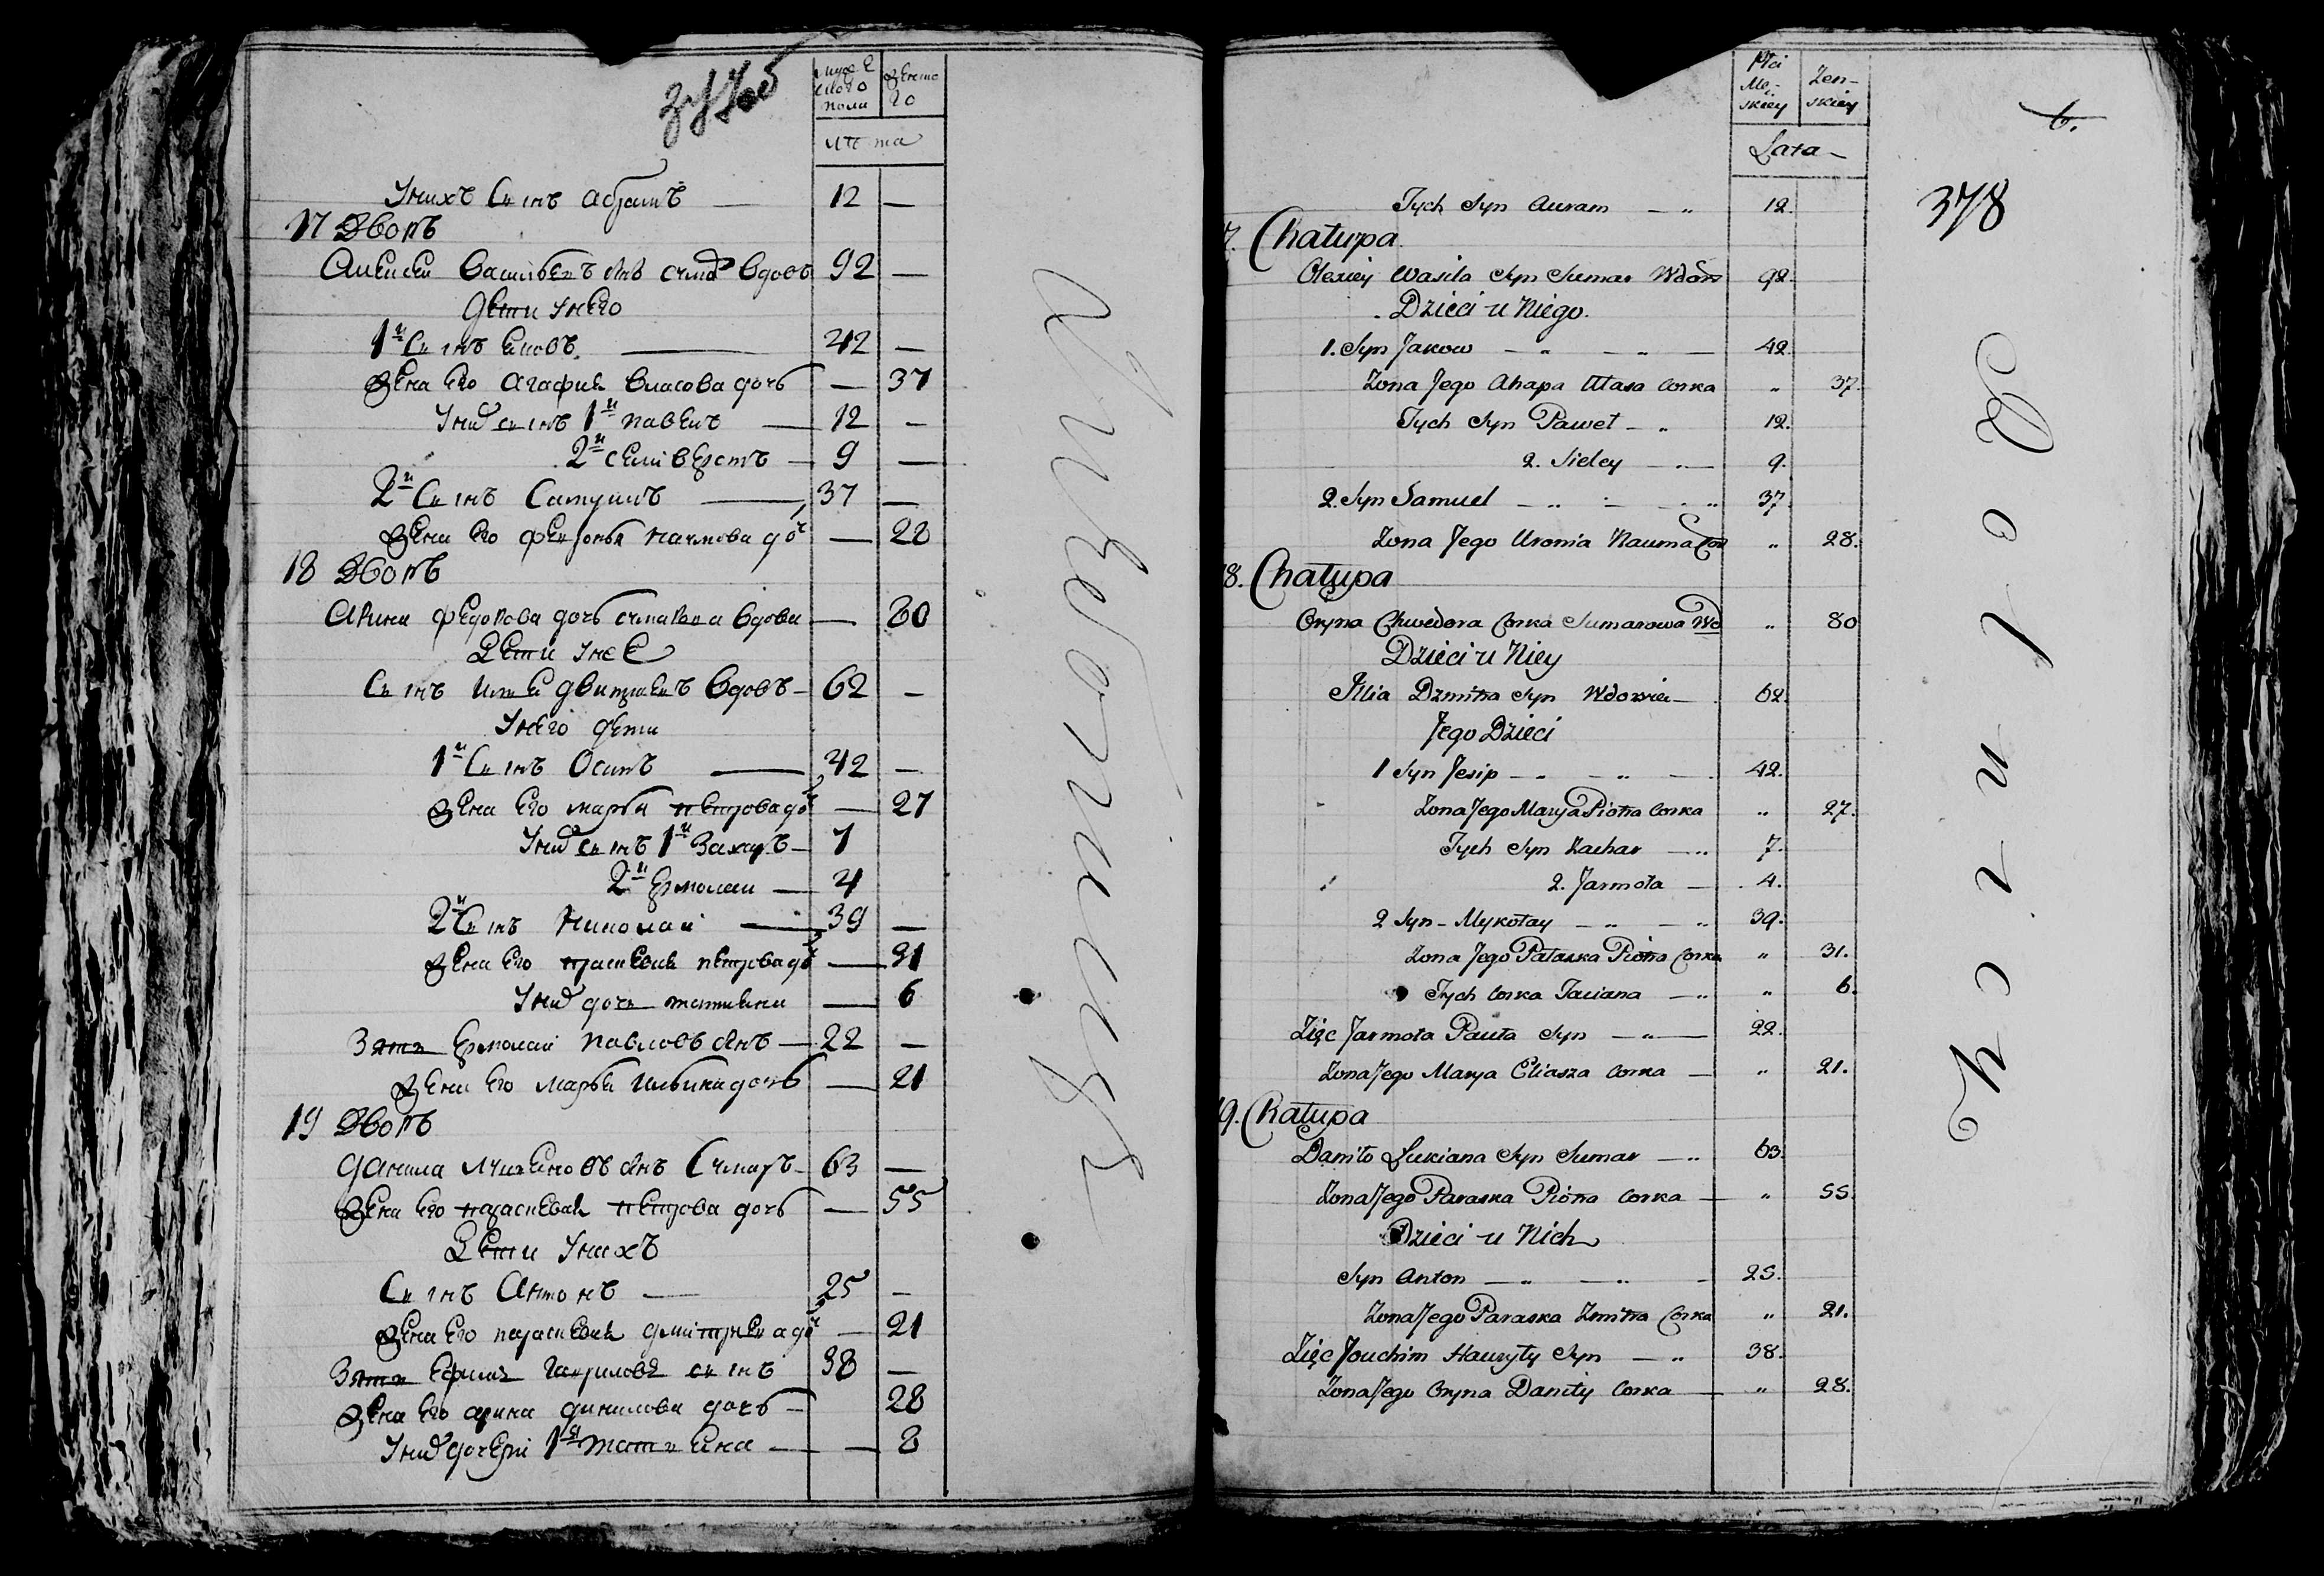 мужескаго пола
женскаго
лѣта
Унихъ Сынъ Абрамъ — 12 —
17 Дворъ
Алексей Васильевъ сынъ Сумаръ вдовъ 92 —
Дети унего
1й Сынъ Яковъ — 42 —
Жена его Агафия Власова дочь — 37
Унихъ сынъ 1й Павелъ — 12 —
2й Селиверстъ — 9 —
2й Сынъ Самуилъ — 37 —
Жена его Февронья Наумова доч — 28
18 Дворъ
Арина Федорова дочь Сумарова вдова — 80
Дети у нее
Сынъ Илья Дмитриевъ вдовъ — 62 —
Унего дети
1й Сынъ Осипъ — 42 —
Жена его Марья Петрова доч — 27
Унихъ сынъ 1й Захаръ — 7
2й Ермолай — 4
2й Сынъ Николай — 39 —
Жена его Прасковия Петрова доч — 31
Унихъ дочь Татияна — 6
Зять Ермолай Павловъ сынъ — 22 —
Жена его Марья Ильина дочь — 21
19 Дворъ
Данила Лукьяновъ сынъ Сумаръ — 63 —
Жена его Прасковия Петрова дочь — 55
Дети унихъ
Сынъ Антонъ — 25 —
Жена его Прасковия Дмитриева доч — 21
Зять Ефимъ Гавриловъ сынъ 38 —
Жена его Арина Данилова дочь — 28
Унихъ дочери 1я Татияна — — 8
Płci Męskiey
Zenskiey
Lata —
6.
378
Tych Syn Auram — „ 12.
7. Chałupa
Olexiey Wasila Syn Sumar Wdow 92.
Dzieci u Niego.
1. Syn Jakow — „ — „ — 42.
Zona Jego Ahapa Ułasa Corka „ 37.
Tych Syn Paweł — „ 12.
2. Sieley — „ — 9.
2. Syn Samuel — „ — „ 37.
Zona Jego Uronia Nauma Cor „ 28.
8. Chałupa
Oryna Chwedora Corka Sumarowa Wd „ 80
Dzieci u Niey
Illia Dzmitra Syn Wdowiec — 62.
Jego Dzieci
1 Syn Jesip — „ — „ — 42.
Zona Jego Marya Piotra Corka „ 27.
Tych Syn Zachar — „ 7.
2. Jarmoła — 4.
2 Syn — Mykołay — „ — „ 39.
Zona Jego Pałaska Piotra Corka „ 31.
Tych Corka Taciana — „ „ 6.
Zięc Jarmoła Pauła Syn — „ — 22.
Zona Jego Marya Eliasza Corka — „ 21.
9. Chałupa
Daniło Łukiana Syn Sumar — „ 63.
Zona Jego Paraska Piotra Corka — „ 55.
Dzieci u Nich
Syn Anton — „ — „ — 25.
Zona Jego Paraska Zmitra Corka „ 21.
Zięc Jouchim Hauryły Syn — „ 38.
Zona Jego Oryna Daniły Corka — „ 28.